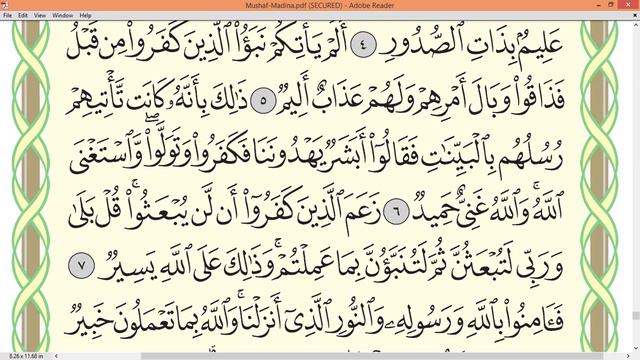 Mushaf-Madina.pdf (SECURED) - Adobe Reader
File Edit View Window Help
عَلِيمٌۢ بِذَاتِ ٱلصُّدُورِ ٤ أَلَمْ يَأْتِكُمْ نَبَؤُا۟ ٱلَّذِينَ كَفَرُوا۟ مِن قَبْلُ
فَذَاقُوا۟ وَبَالَ أَمْرِهِمْ وَلَهُمْ عَذَابٌ أَلِيمٌ ٥ ذَٰلِكَ بِأَنَّهُۥ كَانَت تَّأْتِيهِمْ
رُسُلُهُم بِٱلْبَيِّنَٰتِ فَقَالُوٓا۟ أَبَشَرٌ يَهْدُونَنَا فَكَفَرُوا۟ وَتَوَلَّوا۟ ۖ وَّٱسْتَغْنَى
ٱللَّهُ ۚ وَٱللَّهُ غَنِىٌّ حَمِيدٌ ٦ زَعَمَ ٱلَّذِينَ كَفَرُوٓا۟ أَن لَّن يُبْعَثُوا۟ ۚ قُلْ بَلَىٰ
وَرَبِّى لَتُبْعَثُنَّ ثُمَّ لَتُنَبَّؤُنَّ بِمَا عَمِلْتُمْ ۚ وَذَٰلِكَ عَلَى ٱللَّهِ يَسِيرٌ ٧
فَـَٔامِنُوا۟ بِٱللَّهِ وَرَسُولِهِۦ وَٱلنُّورِ ٱلَّذِىٓ أَنزَلْنَا ۚ وَٱللَّهُ بِمَا تَعْمَلُونَ خَبِيرٌ
8.26 x 11.68 in